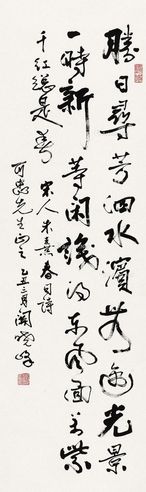 勝日尋芳泗水濱無邊光景
一時新等閑識得東風面萬紫
千紅總是春 宋人朱熹春日詩
可忠先生正之 乙丑三月